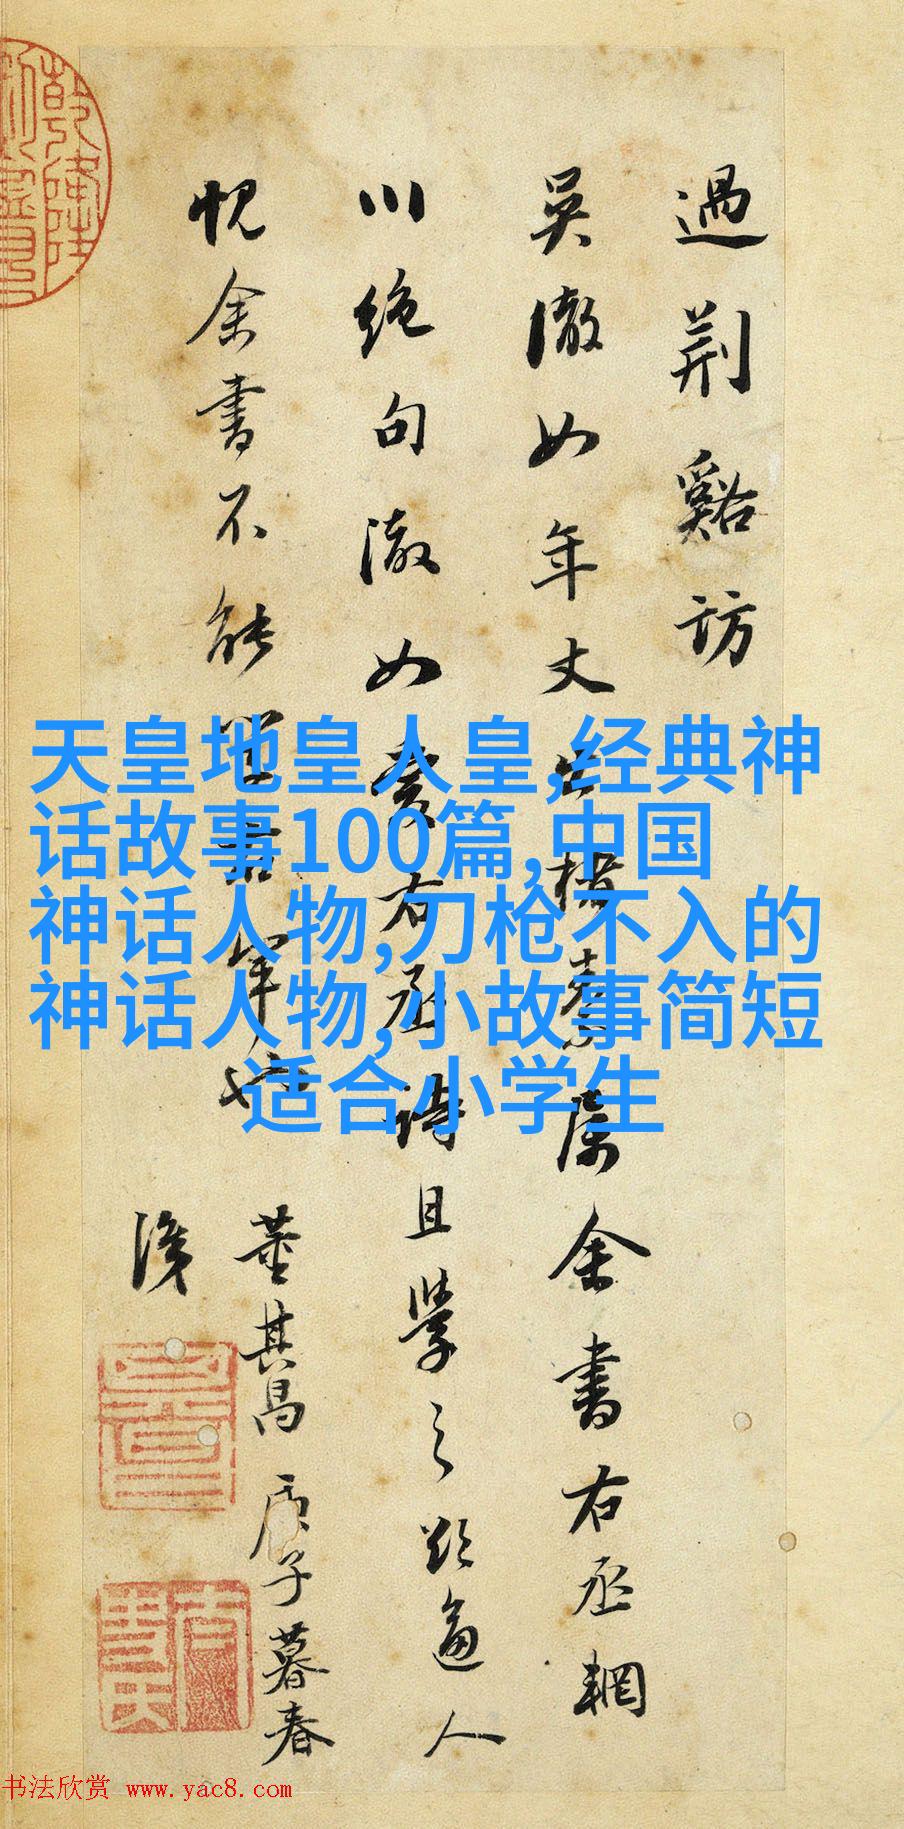 過荆谿訪
吴澈如年丈出楮素屬余書右丞輞
川絶句澈如愛右丞詩且學之欲逼人
愧余書不能
董其昌庚子暮春
識
天皇地皇人皇,经典神
话故事100篇,中国
神话人物,刀枪不入的
神话人物,小故事简短
适合小学生
书法欣赏 www.yac8.com